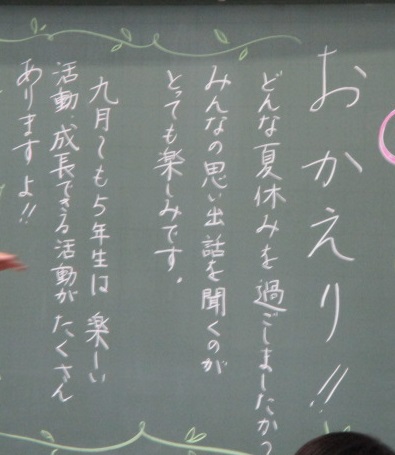 おかえり!!
どんな夏休みを過ごしましたか?
みんなの思い出話を聞くのが
とても楽しみです。
九月〜も5年生は楽しい
活動、成長できる活動がたくさん
ありますよ!!